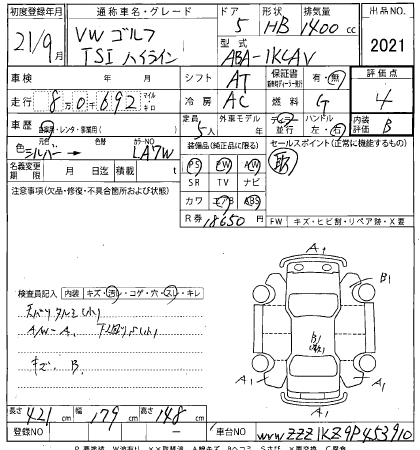 初度登録年月 通称車名・グレード ドア 形状 排気量 出品NO.
21/9月 VW ゴルフ 5 HB 1400cc 2021
TSI ハイライン 型式 ABA-1KCAV
車検 年 月 シフト AT 保証書 有・無 評価点
走行 8万0千692 マイル キロ 冷房 AC 燃料 G 4
車歴 自家用・レンタ・事業用( ) 定員 5人 外車モデル 年 ディーラー 並行 ハンドル 左・右 内装評価 B
色 シルバー 色替 カラーNO LA7W 装備品(純正品に限る) セールスポイント(正常に機能するもの)
名義変更期限 月 日迄 積載 t PS PW AW 取
SR TV ナビ
注意事項(欠品・修復・不具合箇所および状態) カワ エアB ABS
R券 18650円 FW キズ・ヒビ割・リペア跡・X要
A1
B1
検査員記入 内装 キズ・汚レ・コゲ・穴・スレ・キレ
天バリタルミ(小)
A/W-A. 下廻りS(小)
キズ B.
A1 A1
A1
長さ 421cm 幅 179cm 高さ 148cm
登録NO 車台NO WVWZZZ1KZ9P453910